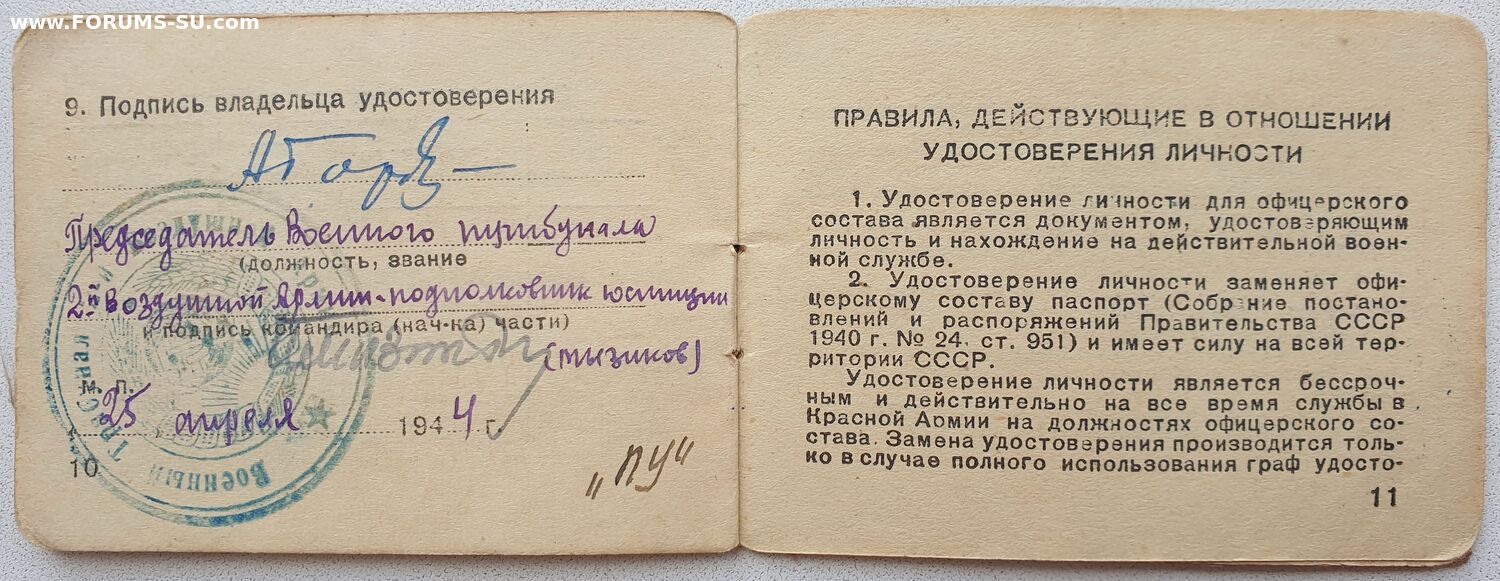 www.FORUMS-SU.com
9. Подпись владельца удостоверения
Председатель Военного трибунала
(должность, звание
2й Воздушной Армии-подполковник юстиции
и подпись командира (нач-ка) части)
(Тызиков)
м. п.
25 апреля 1944 г.
Военный Трибунал
10
„ПУ“
ПРАВИЛА, ДЕЙСТВУЮЩИЕ В ОТНОШЕНИИ
УДОСТОВЕРЕНИЯ ЛИЧНОСТИ
1. Удостоверение личности для офицерского
состава является документом, удостоверяющим
личность и нахождение на действительной воен-
ной службе.
2. Удостоверение личности заменяет офи-
церскому составу паспорт (Собрание постано-
влений и распоряжений Правительства СССР
1940 г. № 24, ст. 951) и имеет силу на всей тер-
ритории СССР.
Удостоверение личности является бессроч-
ным и действительно на все время службы в
Красной Армии на должностях офицерского со-
става. Замена удостоверения производится толь-
ко в случае полного использования граф удосто-
11